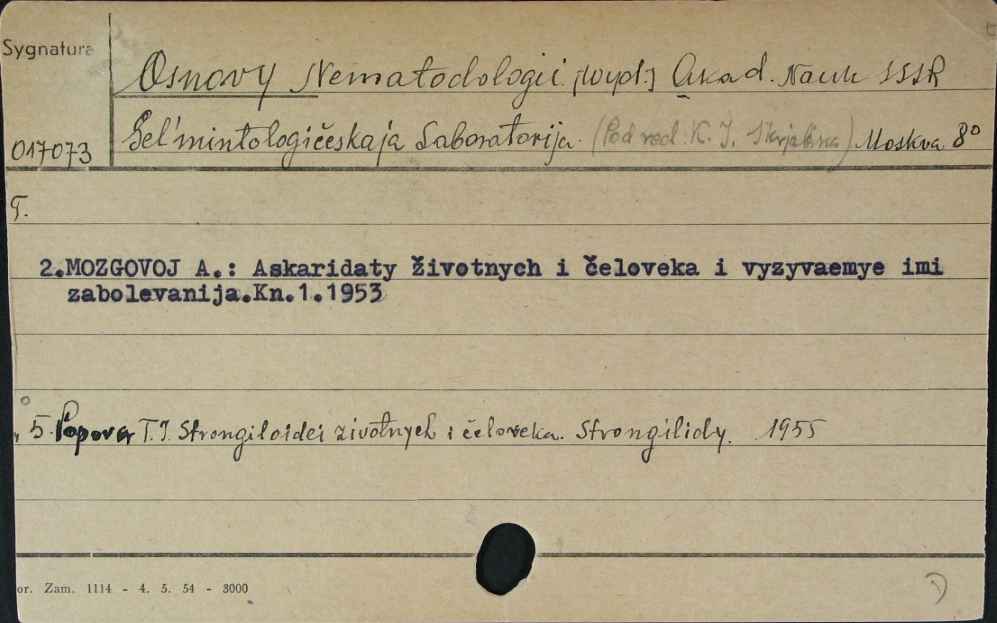 Sygnatura
Osnovy Nematodologii. [Wyd.] Akad. Nauk SSSR
Gel'mintologičeskaja Laboratorija. (Pod red. K. I. Skrjabina) Moskva 8º
017073
T.
2.MOZGOVOJ A.: Askaridaty životnych i čeloveka i vyzyvaemye imi
zabolevanija.Kn.1.1953
„ 5. Popova T.I. Strongiloidei životnych i čeloveka. Strongilidy. 1955
or. Zam. 1114 - 4. 5. 54 - 3000